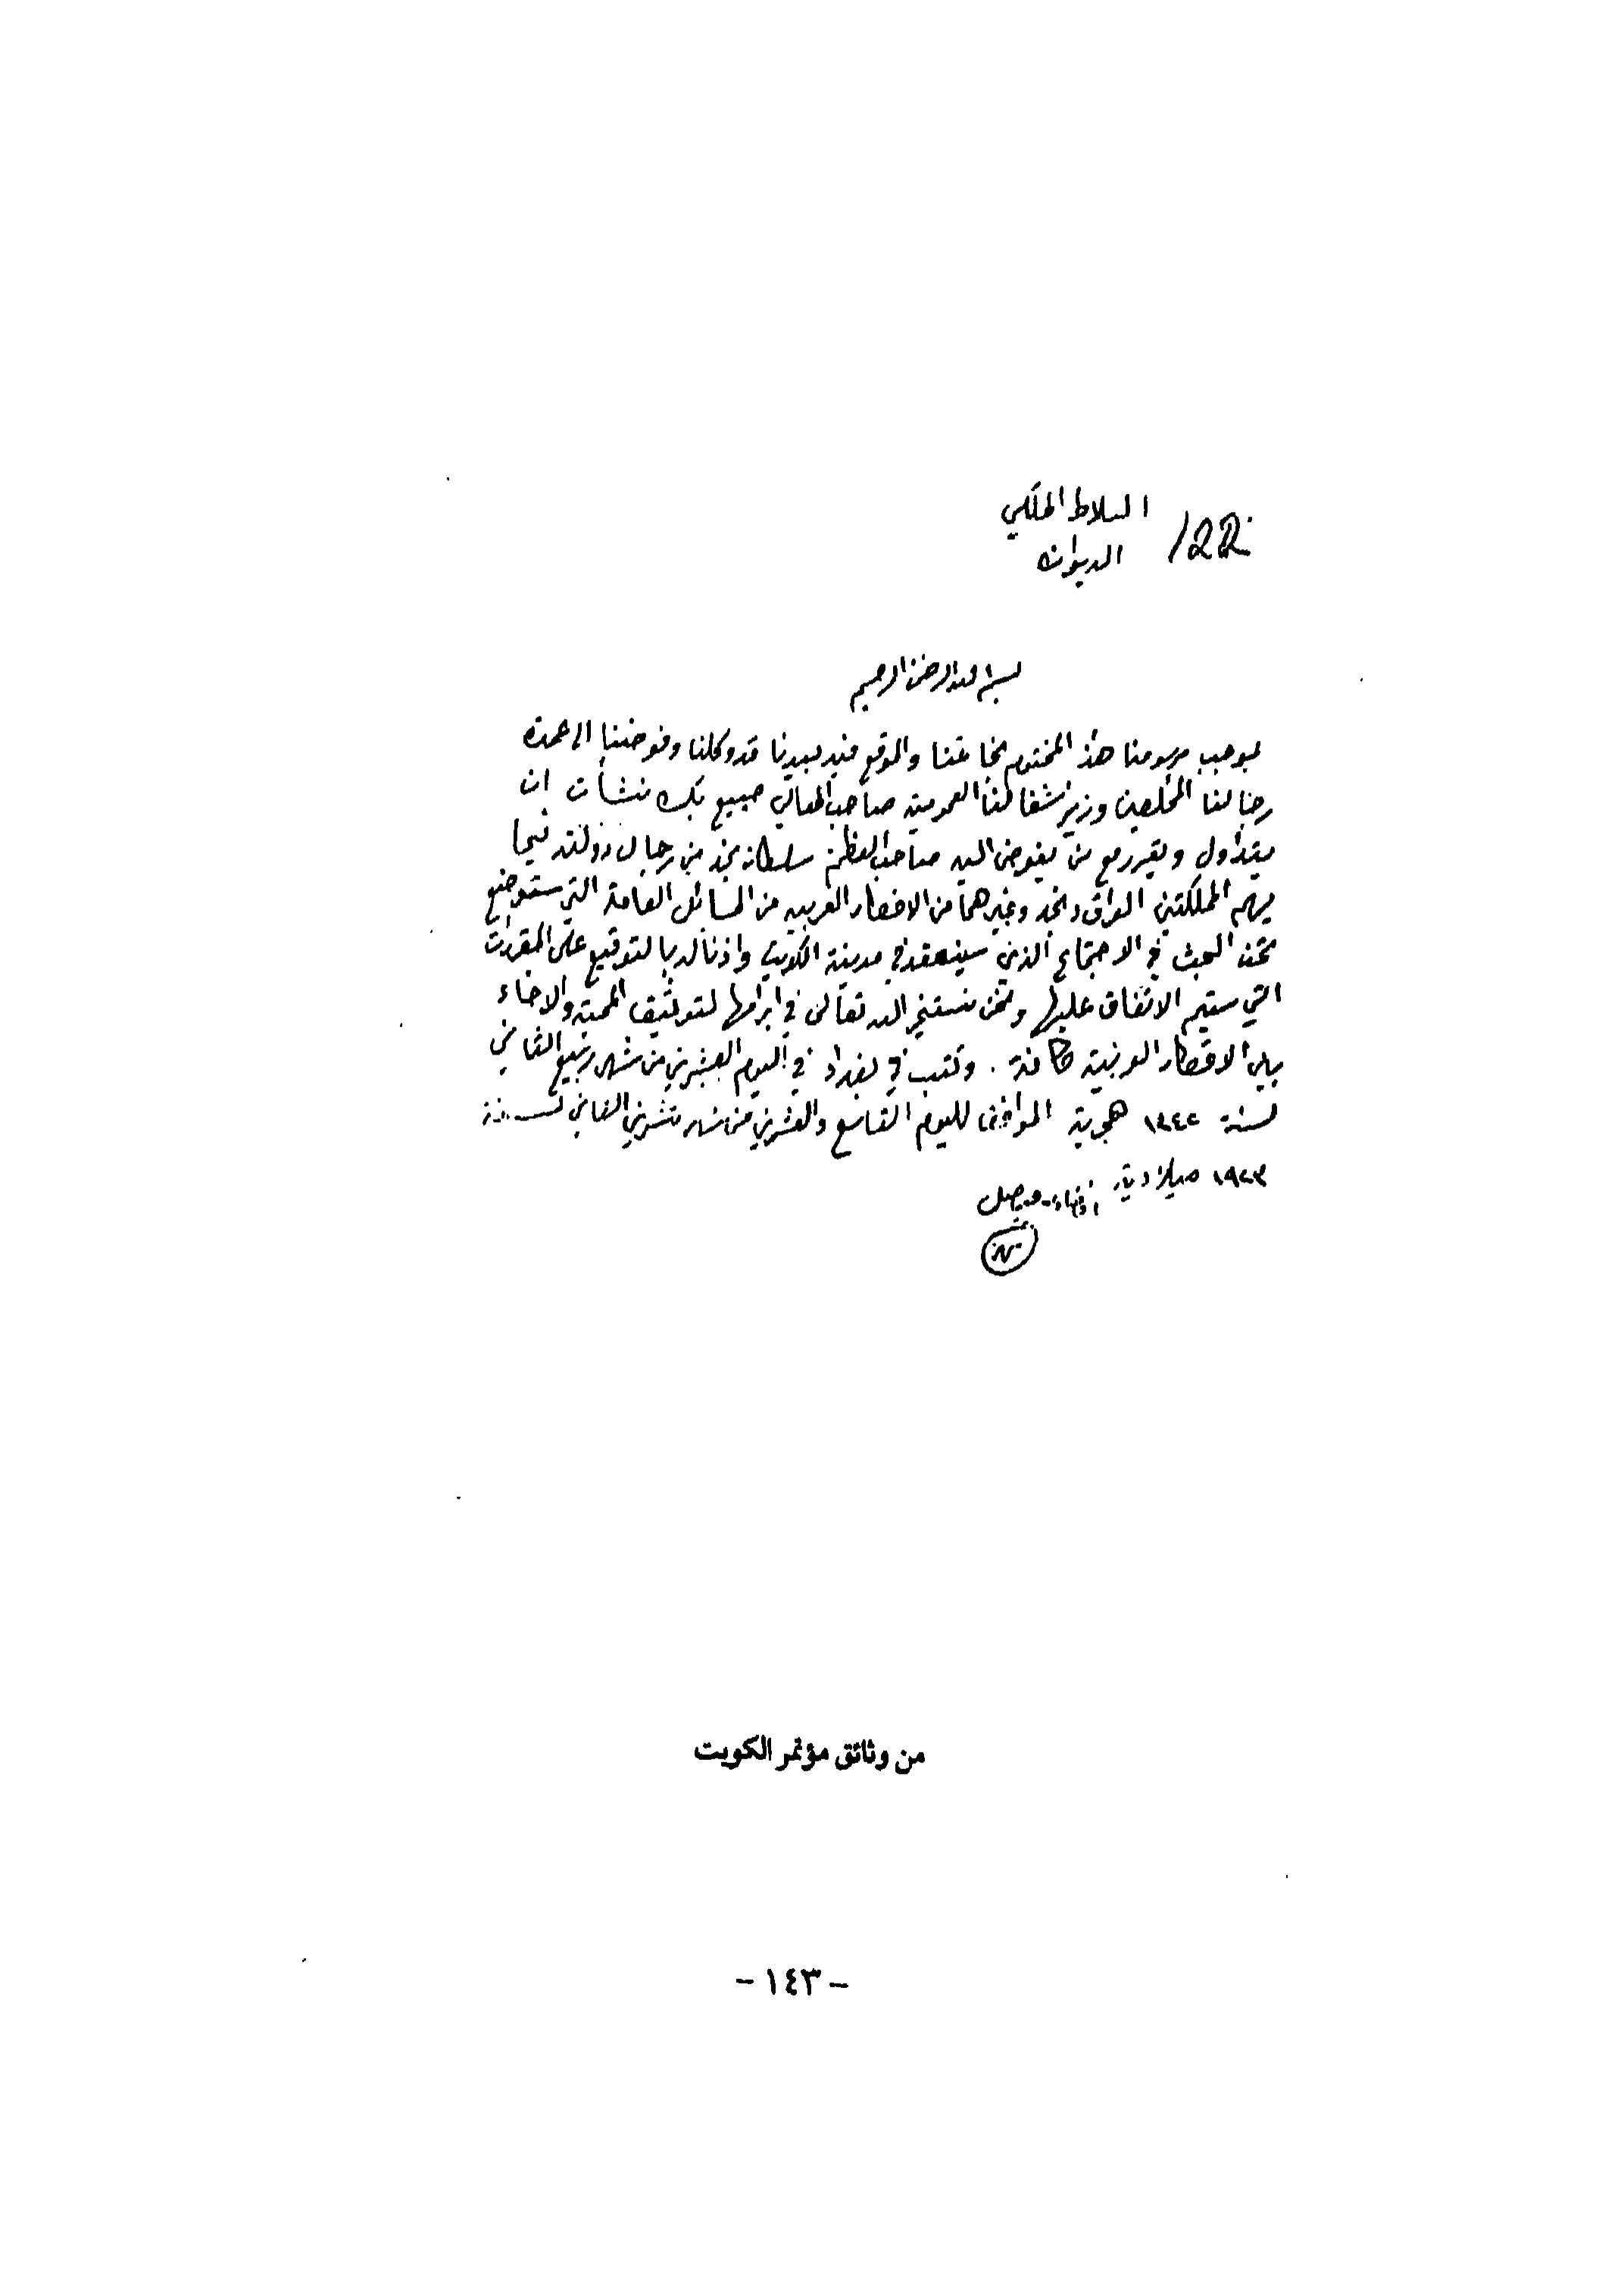 البلاط الملكي
122
الديوان
بسم الله الرحمن الرحيم
بموجب مرسومنا هذا المختوم بخاتمنا والموقع فيه بيدنا قد وكلنا وفوضنا الى عمدة
رجالنا المخلصين وزير اشغالنا العمومية صاحب المعالي صبيح بك نشأت ان
يتداول ويقرر مع من يفوض اليه صاحب العظمة سلطان نجد من رجال دولته فيما
يهم المملكتين العراق ونجد وغيرهما من الاقطار العربيه من المسائل العامة التي ستوضع
تحت البحث في الاجتماع الذي سينعقد في مدينة الكويت واذنا له بالتوقيع على المقررات
التي سيتم الاتفاق عليها ونحن نستخير الله تعالى في ابرامها لتوثيق المحبة والاخاء
بين الاقطار العربية كافة . وكتب في بغداد في اليوم العشرين من شهر ربيع الثاني
لسنة ١٣٤٢ هجرية الموافق لليوم التاسع والعشرين من شهر تشرين الثاني لسنة
١٩٢٣ ميلادية امضاء - فيصل
من وثائق مؤتمر الكويت
- ١٤٣ -